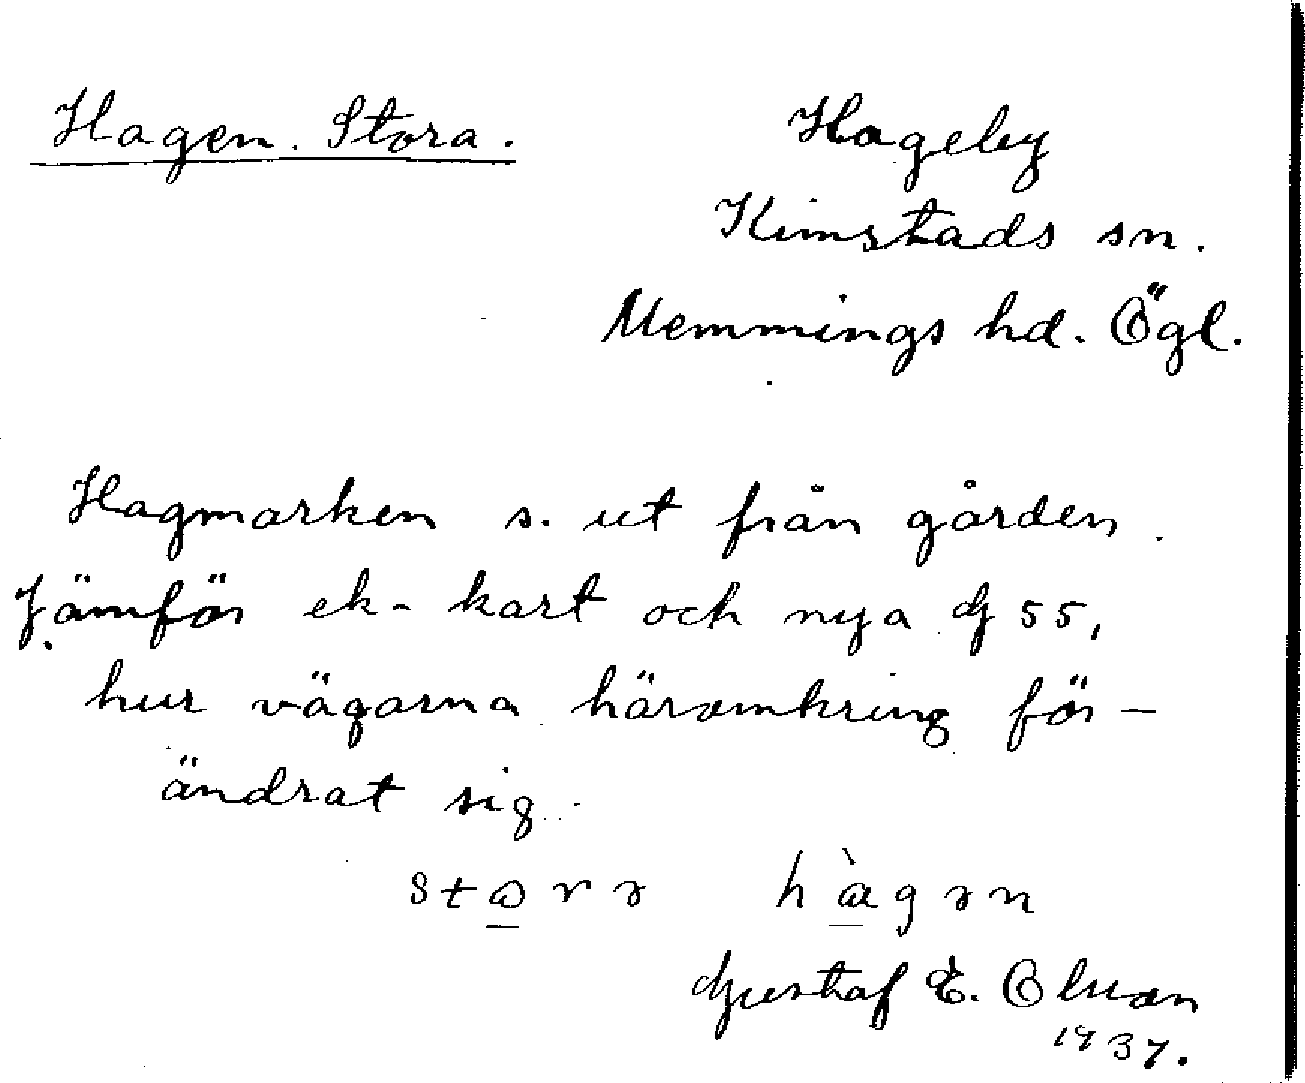 Hagen. Stora.
Hageby
Kimstads sn.
Memmings hd. Ögl.
Hagmarken s. ut från gården.
Jämför ek-kart och nya G 55,
hur vägarna häromkring för-
ändrat sig.
hàgən
Gustaf E.
1937.